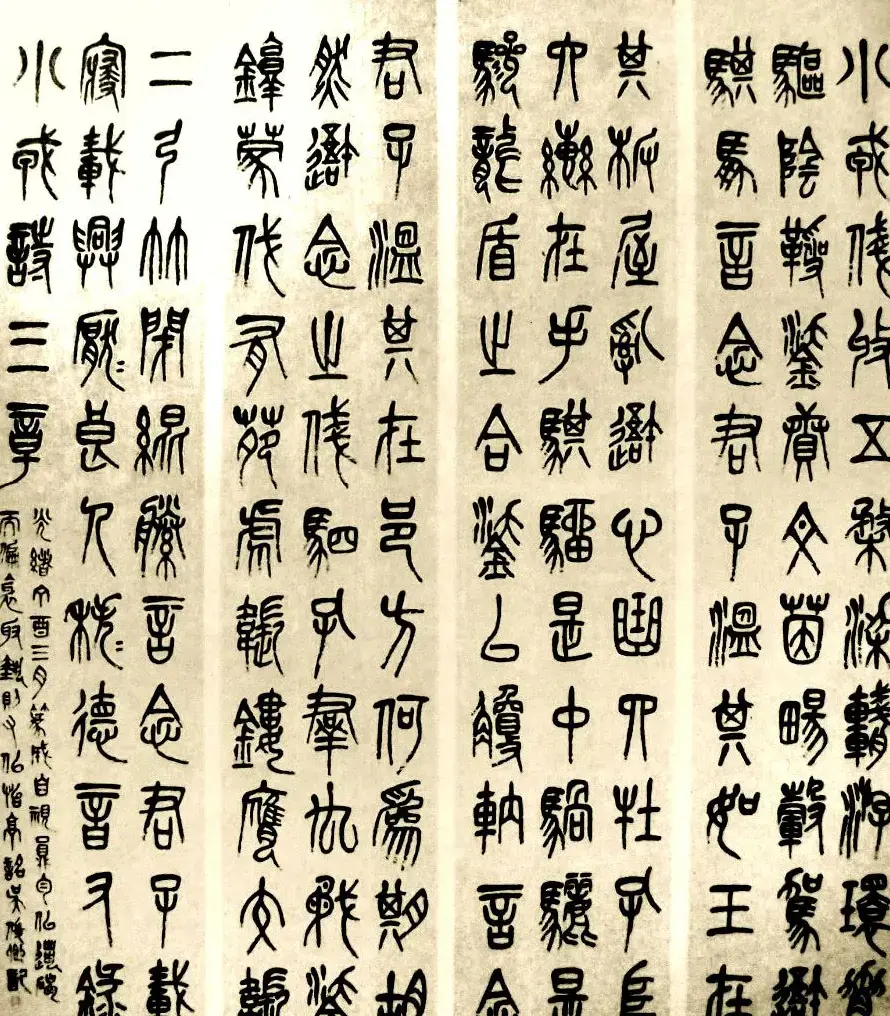 小戎俴收五楘梁輈游環脅
驅陰靷鋈續文茵暢轂駕我
騏馵言念君子溫其如玉在
其板屋亂我心曲四牡孔阜
六轡在手騏騮是中騧驪是
驂龍盾之合鋈以觼軜言念
君子溫其在邑方何為期胡
然我念之俴駟孔羣厹矛鋈
錞蒙伐有苑虎韔鏤膺交韔
二弓竹閉緄縢言念君子載
寢載興厭〻良人秩〻德音又錄
小戎詩三章
光緒丁酉三月篆成自視
吳俊卿記